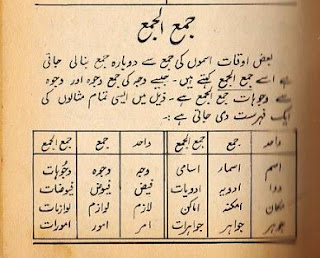 جمع الجمع
بعض اوقات اسموں کی جمع سے دوبارہ جمع بنا لی جاتی
ہے اسے جمع الجمع کہتے ہیں۔ جیسے وجہ کی جمع وجوہ اور وجوہ
سے وجوہات جمع الجمع ہے۔ ذیل میں ایسی تمام مثالوں کی
ایک فہرست دی جاتی ہے:۔
واحد جمع جمع الجمع واحد جمع جمع الجمع
اسم اسمار اسامی وجہ وجوہ وجوہات
دوا ادویہ ادویات فیض فیوض فیوضات
مکان امکنہ اماکن لازم لوازم لوازمات
جوہر جواہر جواہرات امر امور امورات